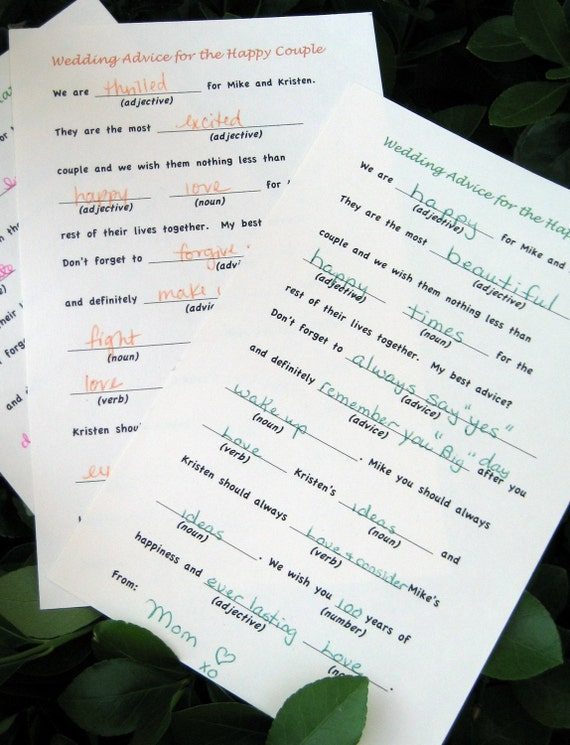 Wedding Advice for the Happy Couple
We are thrilled for Mike and Kristen.
(adjective)
They are the most excited
(adjective)
couple and we wish them nothing less than
happy love for
(adjective) (noun)
rest of their lives together. My best
Don't forget to forgive
and definitely make
fight
(noun)
love
(verb)
Kristen
Wedding Advice for the
We are happy for Mike and
(adjective)
They are the most beautiful
(adjective)
couple and we wish them nothing less than
happy times for the
(adjective) (noun)
rest of their lives together. My best advice?
Don't forget to always say "yes"
(advice)
and definitely remember you "Big" day after you
(advice)
wake up. Mike you should always
(noun)
Love Kristen's ideas and
(verb) (noun)
Kristen should always Love & consider Mike's
(verb)
ideas. We wish you 100 years of
(noun) (number)
happiness and everlasting Love.
(adjective)
From:
Mom ♡
xo